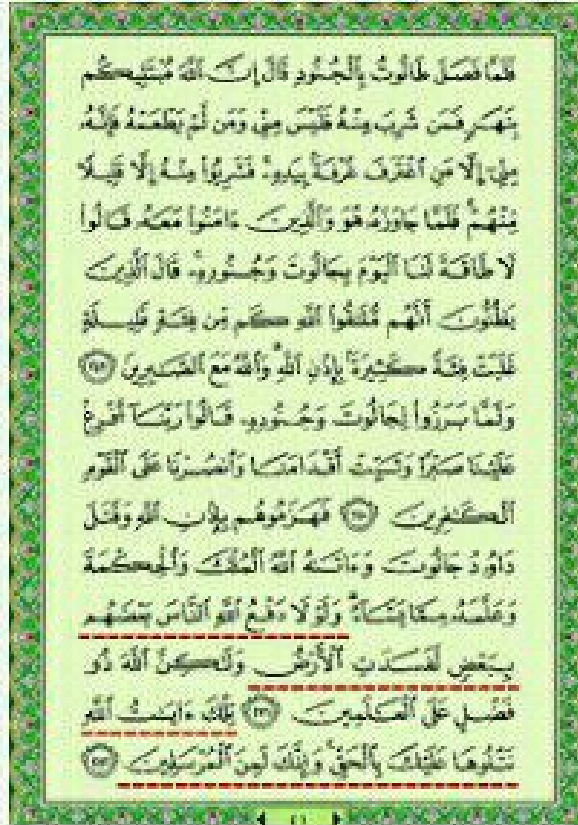 فَلَمَّا فَصَلَ طَالُوتُ بِٱلْجُنُودِ قَالَ إِنَّ ٱللَّهَ مُبْتَلِيكُم
بِنَهَرٍ فَمَن شَرِبَ مِنْهُ فَلَيْسَ مِنِّى وَمَن لَّمْ يَطْعَمْهُ فَإِنَّهُۥ
مِنِّىٓ إِلَّا مَنِ ٱغْتَرَفَ غُرْفَةًۢ بِيَدِهِۦ ۚ فَشَرِبُوا۟ مِنْهُ إِلَّا قَلِيلًا
مِّنْهُمْ ۚ فَلَمَّا جَاوَزَهُۥ هُوَ وَٱلَّذِينَ ءَامَنُوا۟ مَعَهُۥ قَالُوا۟
لَا طَاقَةَ لَنَا ٱلْيَوْمَ بِجَالُوتَ وَجُنُودِهِۦ ۚ قَالَ ٱلَّذِينَ
يَظُنُّونَ أَنَّهُم مُّلَـٰقُوا۟ ٱللَّهِ كَم مِّن فِئَةٍ قَلِيلَةٍ
غَلَبَتْ فِئَةً كَثِيرَةًۢ بِإِذْنِ ٱللَّهِ ۗ وَٱللَّهُ مَعَ ٱلصَّـٰبِرِينَ ٢٤٩
وَلَمَّا بَرَزُوا۟ لِجَالُوتَ وَجُنُودِهِۦ قَالُوا۟ رَبَّنَآ أَفْرِغْ
عَلَيْنَا صَبْرًا وَثَبِّتْ أَقْدَامَنَا وَٱنصُرْنَا عَلَى ٱلْقَوْمِ
ٱلْكَـٰفِرِينَ ٢٥٠ فَهَزَمُوهُم بِإِذْنِ ٱللَّهِ وَقَتَلَ
دَاوُۥدُ جَالُوتَ وَءَاتَىٰهُ ٱللَّهُ ٱلْمُلْكَ وَٱلْحِكْمَةَ
وَعَلَّمَهُۥ مِمَّا يَشَآءُ ۗ وَلَوْلَا دَفْعُ ٱللَّهِ ٱلنَّاسَ بَعْضَهُم
بِبَعْضٍ لَّفَسَدَتِ ٱلْأَرْضُ وَلَـٰكِنَّ ٱللَّهَ ذُو
فَضْلٍ عَلَى ٱلْعَـٰلَمِينَ ٢٥١ تِلْكَ ءَايَـٰتُ ٱللَّهِ
نَتْلُوهَا عَلَيْكَ بِٱلْحَقِّ ۚ وَإِنَّكَ لَمِنَ ٱلْمُرْسَلِينَ ٢٥٢
٤١